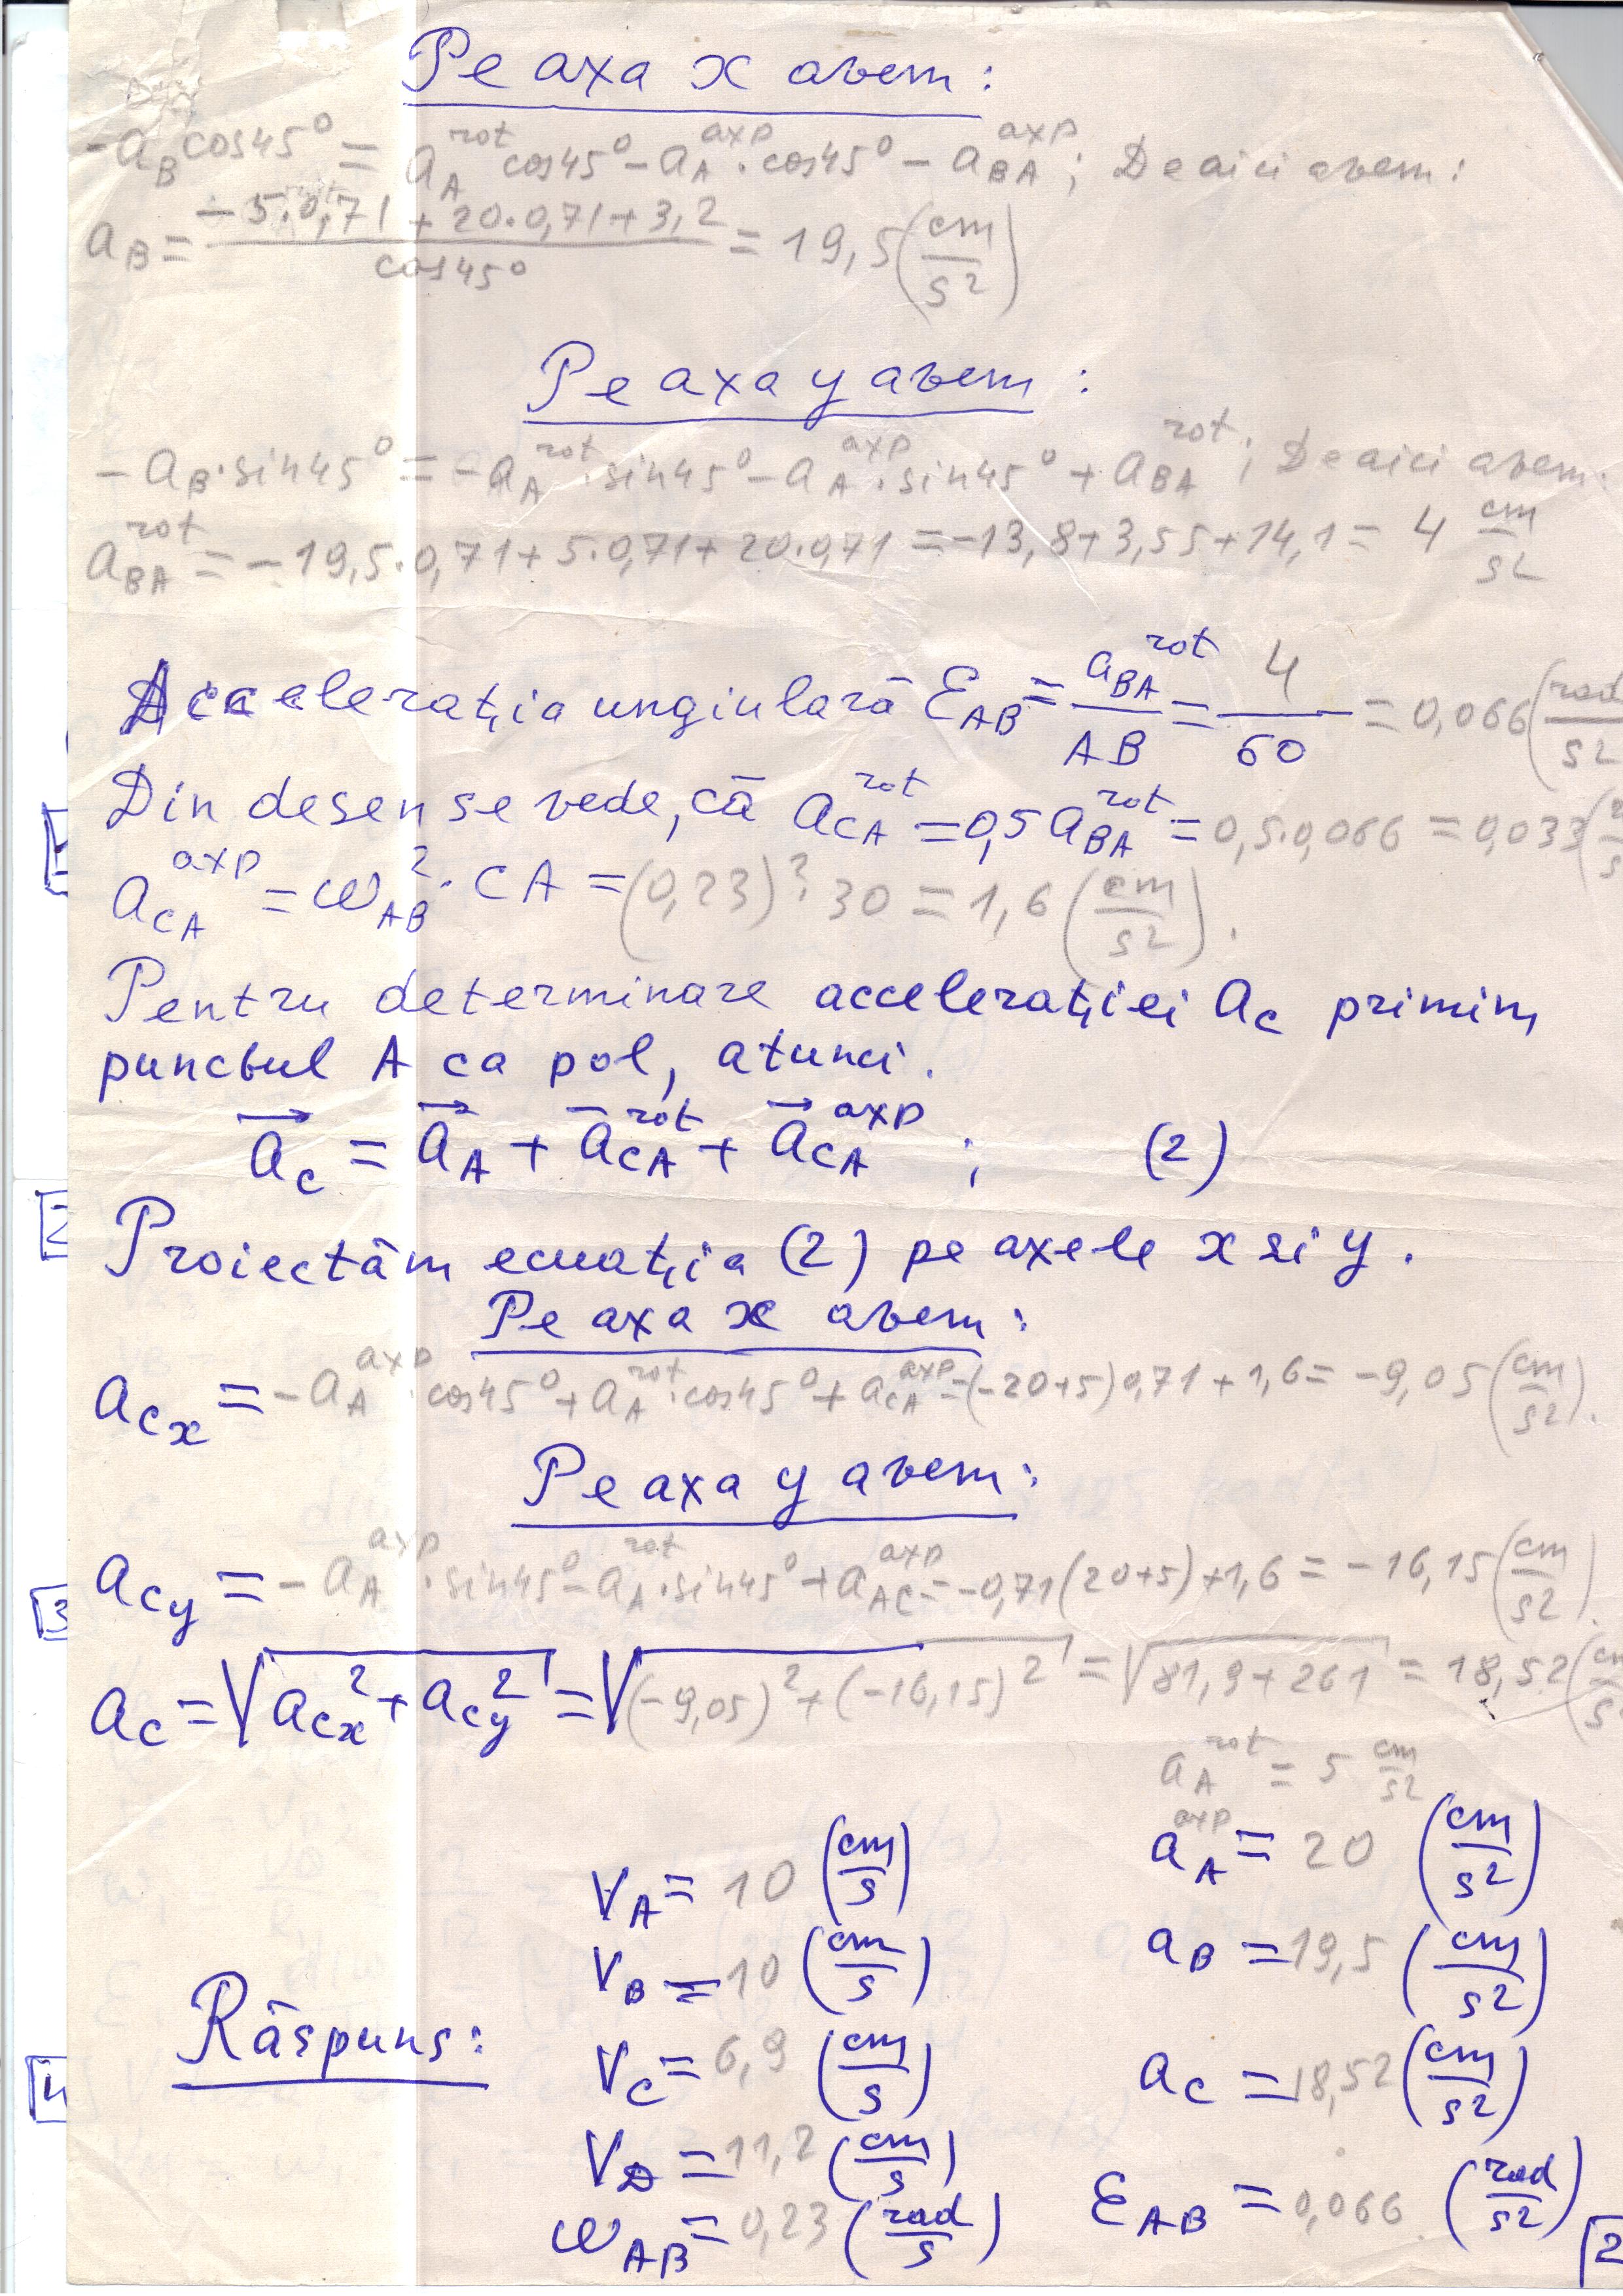 Pe axa x avem:
-a_B cos45° = a_A^rot cos45° - a_A^axp · cos45° - a_BA^axp ; De aici avem:
a_B = (-5·0,71 + 20·0,71 + 3,2) / cos45° = 19,5 (cm/s²)
Pe axa y avem:
-a_B · sin45° = -a_A^rot · sin45° - a_A^axp · sin45° + a_BA^rot ; De aici avem:
a_BA^rot = -19,5·0,71 + 5·0,71 + 20·0,71 = -13,8 + 3,55 + 14,1 = 4 cm/s²
Accelerația unghiulară ε_AB = a_BA^rot / AB = 4 / 60 = 0,066 (rad/s²
Din desen se vede, că a_CA^rot = 0,5 a_BA^rot = 0,5·0,066 = 0,033 (
a_CA^axp = ω_AB² · CA = (0,23)² · 30 = 1,6 (cm/s²).
Pentru determinare accelerației a_C primim
punctul A ca pol, atunci.
a_C = a_A + a_CA^rot + a_CA^axp ; (2)
Proiectăm ecuația (2) pe axele x si y.
Pe axa x avem:
a_Cx = -a_A^axp · cos45° + a_A^rot · cos45° + a_CA^axp = (-20+5) 0,71 + 1,6 = -9,05 (cm/s²).
Pe axa y avem:
a_Cy = -a_A^axp · sin45° - a_A^rot · sin45° + a_AC^axp = -0,71 (20+5) + 1,6 = -16,15 (cm/s²).
a_C = √(a_Cx² + a_Cy²) = √((-9,05)² + (-16,15)²) = √(81,9 + 261) = 18,52 (cm/s
a_A^rot = 5 cm/s²
V_A = 10 (cm/s) a_A^axp = 20 (cm/s²)
V_B = 10 (cm/s) a_B = 19,5 (cm/s²)
Răspuns: V_C = 6,9 (cm/s) a_C = 18,52 (cm/s²)
V_D = 11,2 (cm/s)
ω_AB = 0,23 (rad/s) ε_AB = 0,066 (rad/s²)
2